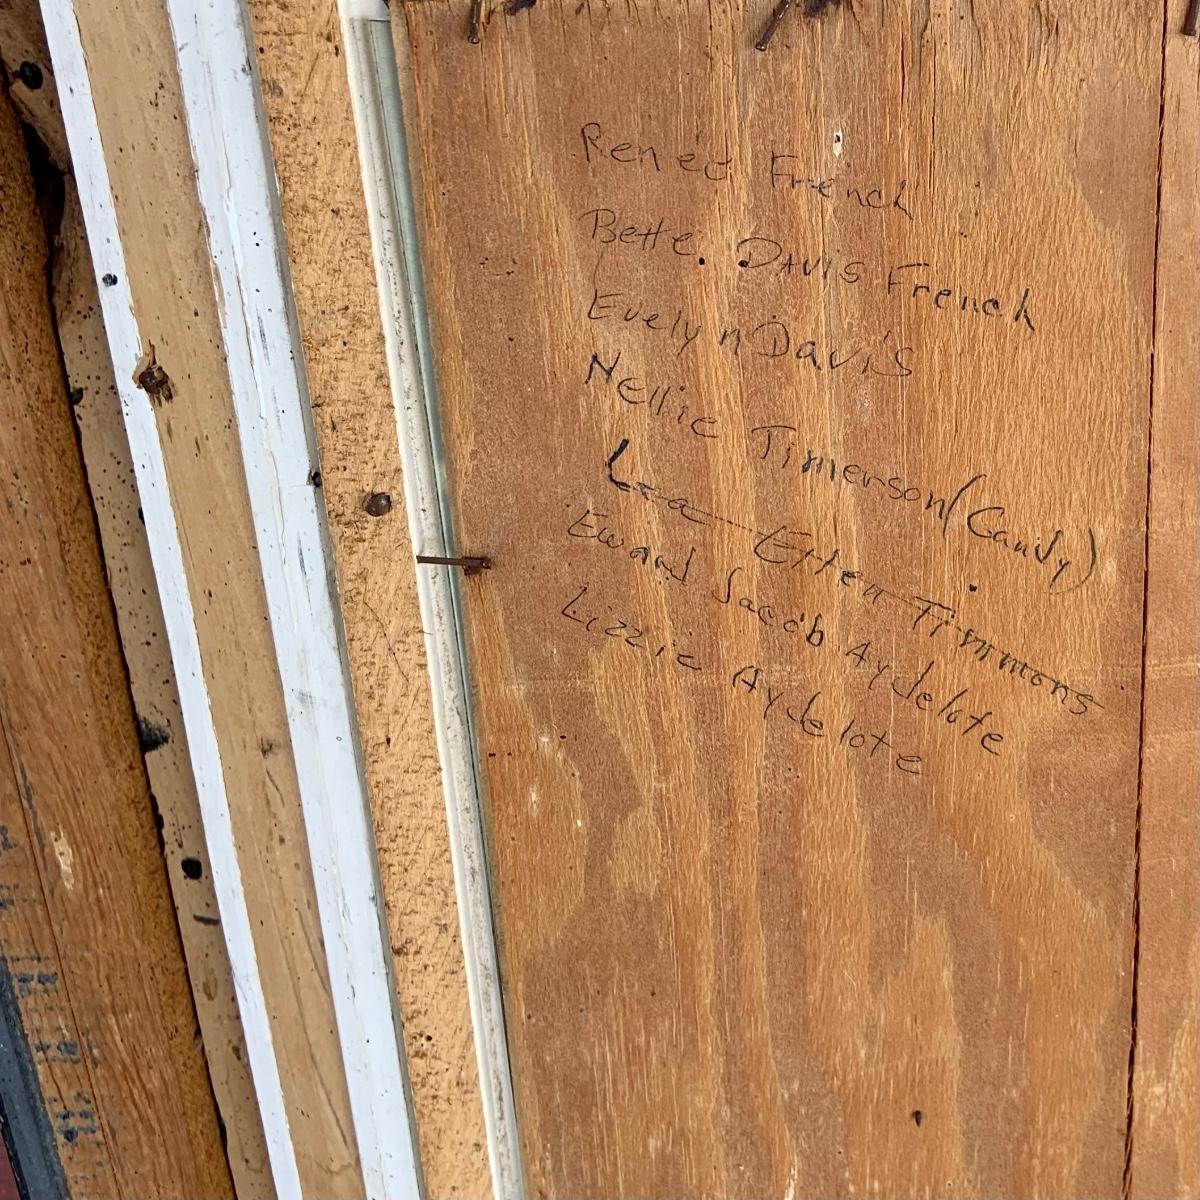 Reneé French
Bette. Davis French
Evelyn Davis
Nellie Timerson (Candy)
Etten Timmons
Eward Jacob Aydelote
Lizzie Aydelote